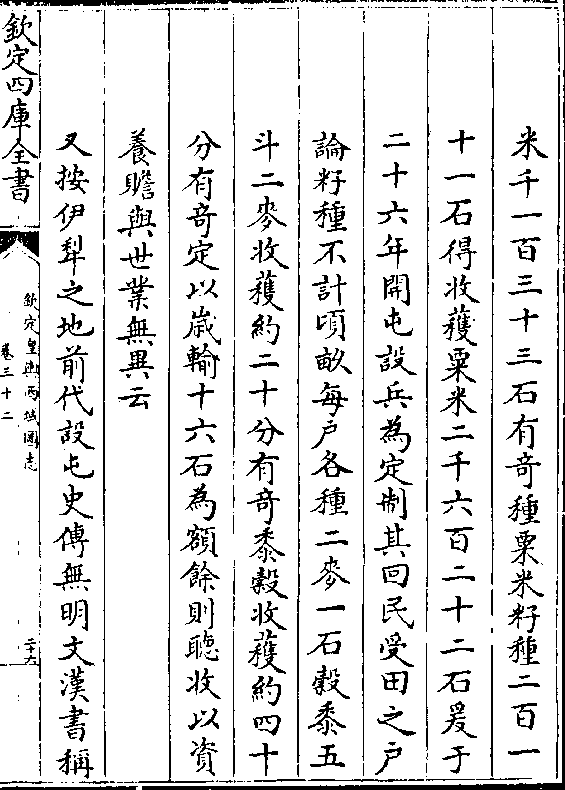 米千一百三十三石有竒種粟米籽種二百一
十一石得收蓌粟米二千六百二十二石爰于
二十六年開屯設兵為定制其回民受田之户
論籽種不計頃畝每户各種二麥一石穀黍五
斗二麥收蓌約二十分有竒黍穀收蓌約四十
分有竒定以嵗輸十六石為額餘則聽收以資
養贍與世業無異云
又按伊犂之地前代設屯史傳無明文漢書稱
欽定四庫全書
欽定皇輿西域圖志
卷三十二
二十六